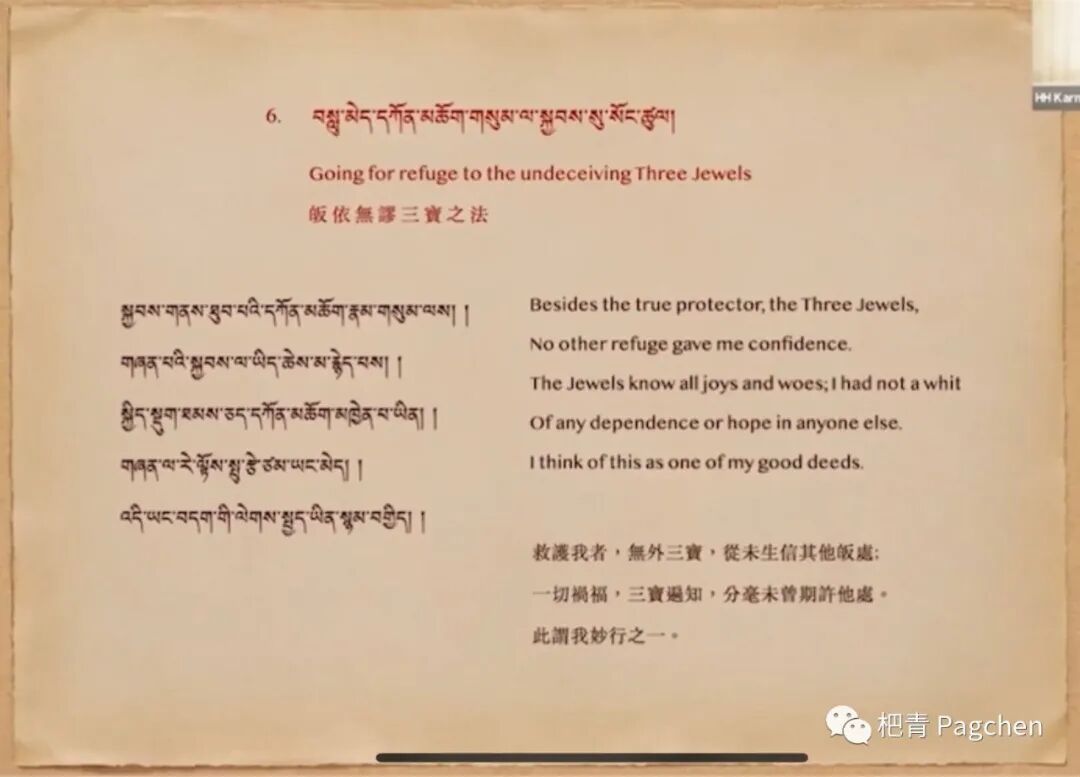 HH Karm
6. བསླུ་མེད་དཀོན་མཆོག་གསུམ་ལ་སྐྱབས་སུ་སོང་ཚུལ།
Going for refuge to the undeceiving Three Jewels
皈依無謬三寶之法
སྐྱབས་གནས་ཐུབ་པའི་དཀོན་མཆོག་རྣམ་གསུམ་ལས། །
གཞན་པའི་སྐྱབས་ལ་ཡིད་ཆེས་མ་རྙེད་པས། །
སྐྱིད་སྡུག་ཐམས་ཅད་དཀོན་མཆོག་མཁྱེན་པ་ཡིན། །
གཞན་ལ་རེ་ལྟོས་སྤུ་རྩེ་ཙམ་ཡང་མེད། །
འདི་ཡང་བདག་གི་ལེགས་སྤྱད་ཡིན་སྙམ་བགྱིད། །
Besides the true protector, the Three Jewels,
No other refuge gave me confidence.
The Jewels know all joys and woes; I had not a whit
Of any dependence or hope in anyone else.
I think of this as one of my good deeds.
救護我者，無外三寶，從未生信其他皈處;
一切禍福，三寶遍知，分毫未曾期許他處。
此謂我妙行之一。
杷青 Pagchen